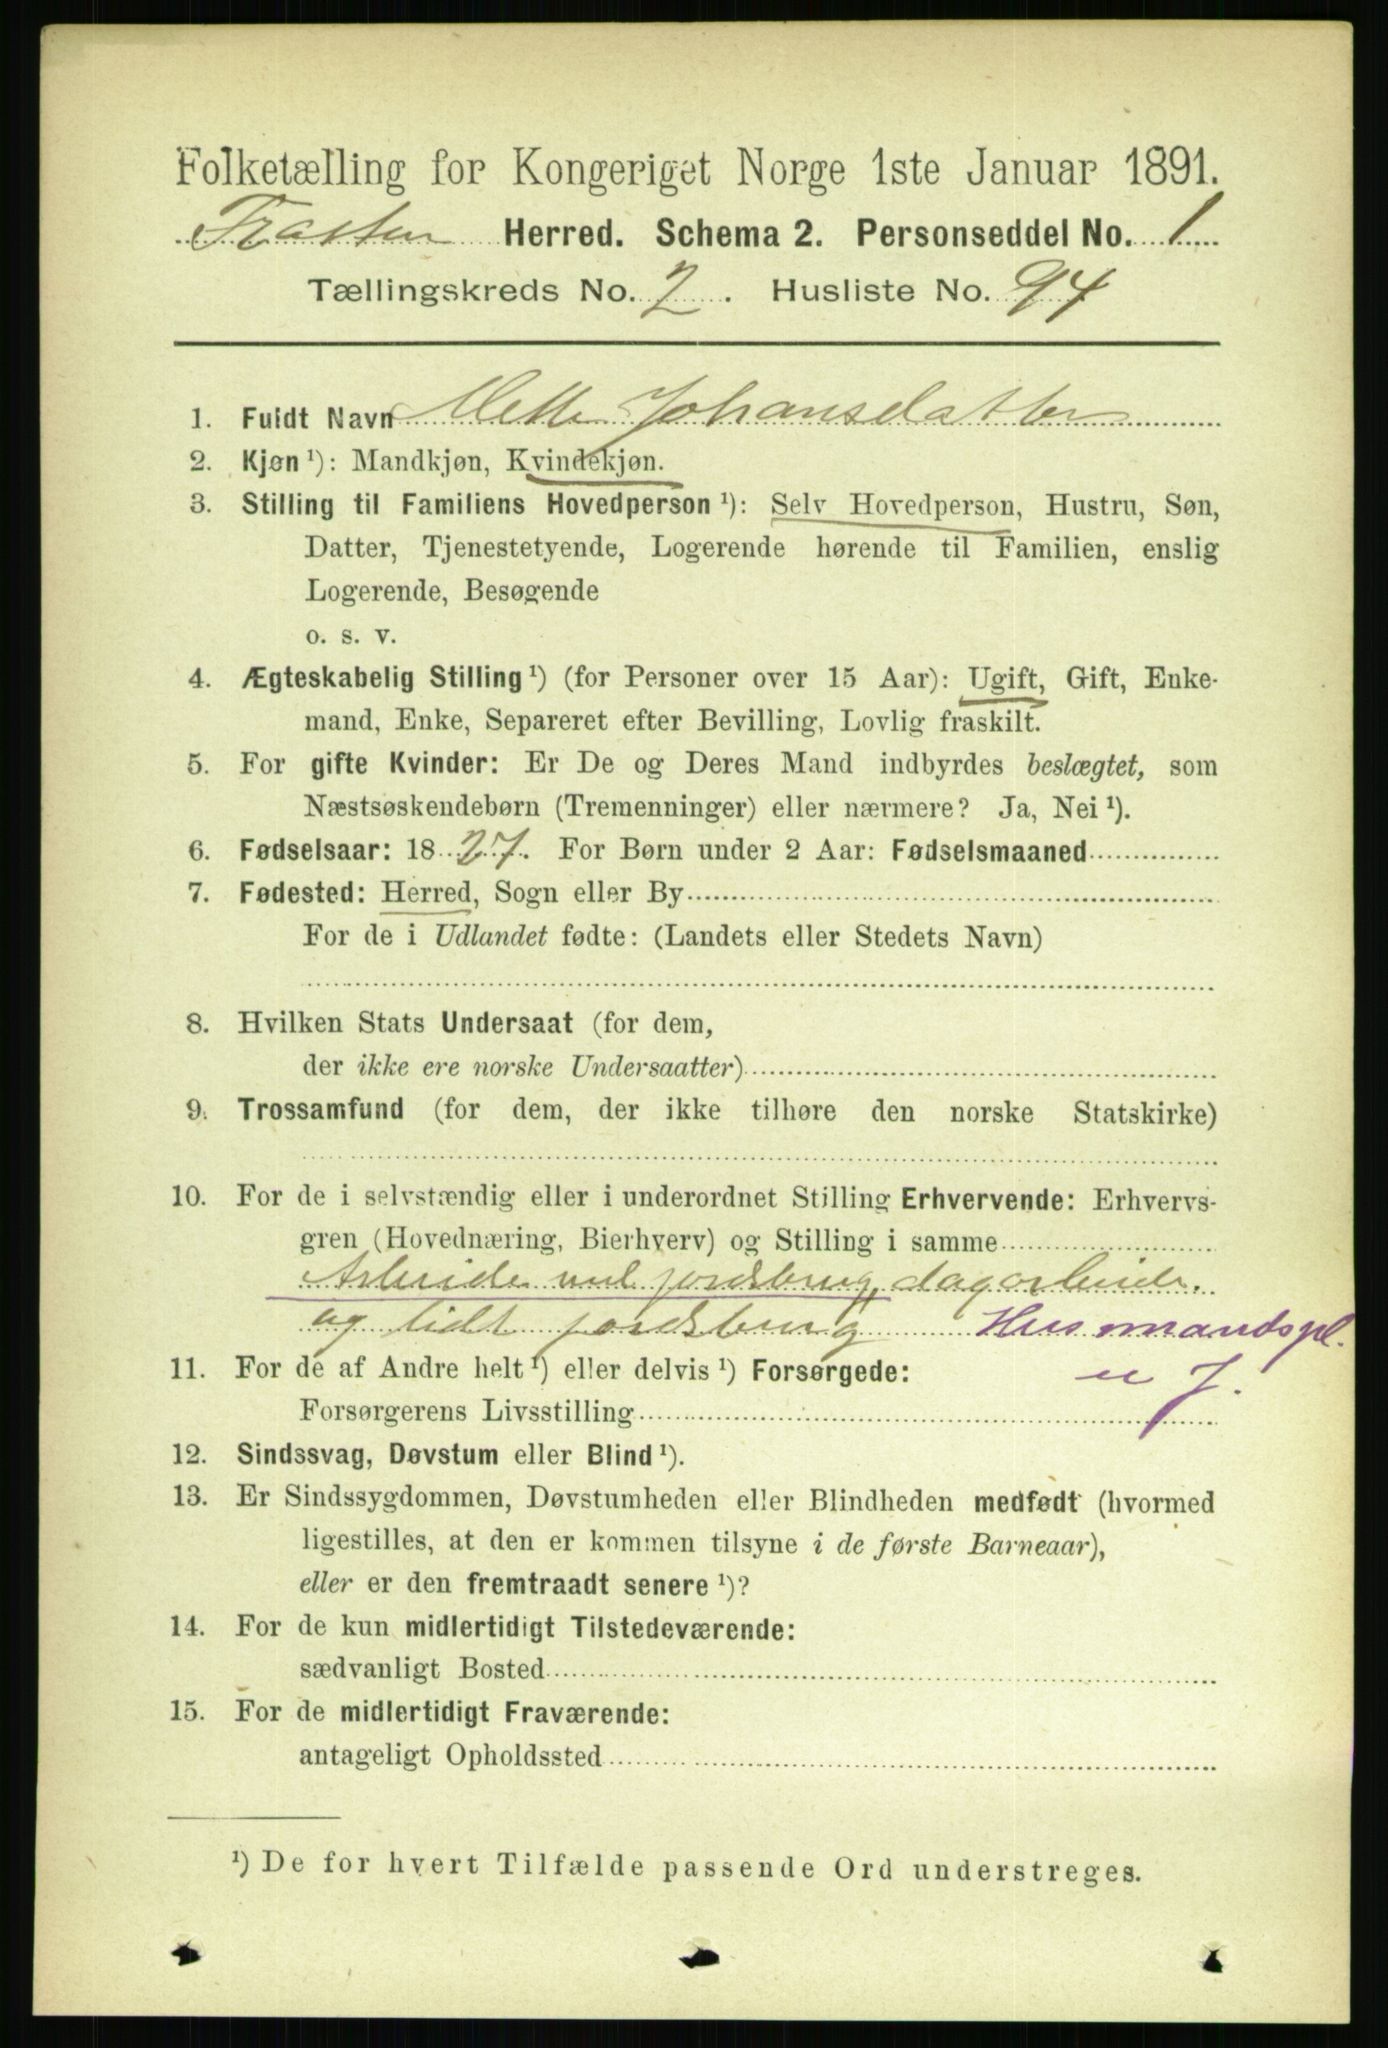 Folketælling for Kongeriget Norge 1ste Januar 1891.
Trasten Herred. Schema 2. Personseddel No. 1
Tællingskreds No. 2. Husliste No. 94
1. Fuldt Navn Mette Johansdatter
2. Kjøn ¹): Mandkjøn, Kvindekjøn.
3. Stilling til Familiens Hovedperson ¹): Selv Hovedperson, Hustru, Søn,
Datter, Tjenestetyende, Logerende hørende til Familien, enslig
Logerende, Besøgende
o. s. v.
4. Ægteskabelig Stilling ¹) (for Personer over 15 Aar): Ugift, Gift, Enke-
mand, Enke, Separeret efter Bevilling, Lovlig fraskilt.
5. For gifte Kvinder: Er De og Deres Mand indbyrdes beslægtet, som
Næstsøskendebørn (Tremenninger) eller nærmere? Ja, Nei ¹).
6. Fødselsaar: 1827. For Børn under 2 Aar: Fødselsmaaned
7. Fødested: Herred, Sogn eller By
For de i Udlandet fødte: (Landets eller Stedets Navn)
8. Hvilken Stats Undersaat (for dem,
der ikke ere norske Undersaatter)
9. Trossamfund (for dem, der ikke tilhøre den norske Statskirke)
10. For de i selvstændig eller i underordnet Stilling Erhvervende: Erhvervs-
gren (Hovednæring, Bierhverv) og Stilling i samme
Arbeide ved jordsbrug, dagarbeide.
og lidt jordsbrug Husmandspl.
11. For de af Andre helt ¹) eller delvis ¹) Forsørgede: u J.
Forsørgerens Livsstilling
12. Sindssvag, Døvstum eller Blind ¹).
13. Er Sindssygdommen, Døvstumheden eller Blindheden medfødt (hvormed
ligestilles, at den er kommen tilsyne i de første Barneaar),
eller er den fremtraadt senere ¹)?
14. For de kun midlertidigt Tilstedeværende:
sædvanligt Bosted
15. For de midlertidigt Fraværende:
antageligt Opholdssted
¹) De for hvert Tilfælde passende Ord understreges.